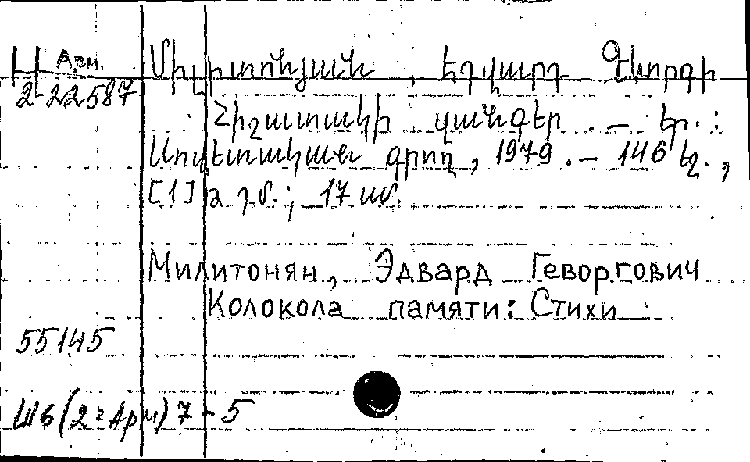 Арм.
Միլիտոնյան, Էդվարդ Գևորգի
2-22587
Հիշատակի զանգեր. – Եր.:
Սովետական գրող, 1979. – 146 էջ.,
[1] չ.; 17 սմ.
Милитонян, Эдвард Геворгович
Колокола памяти: Стихи
55145
Ш6(2=Арм)7-5